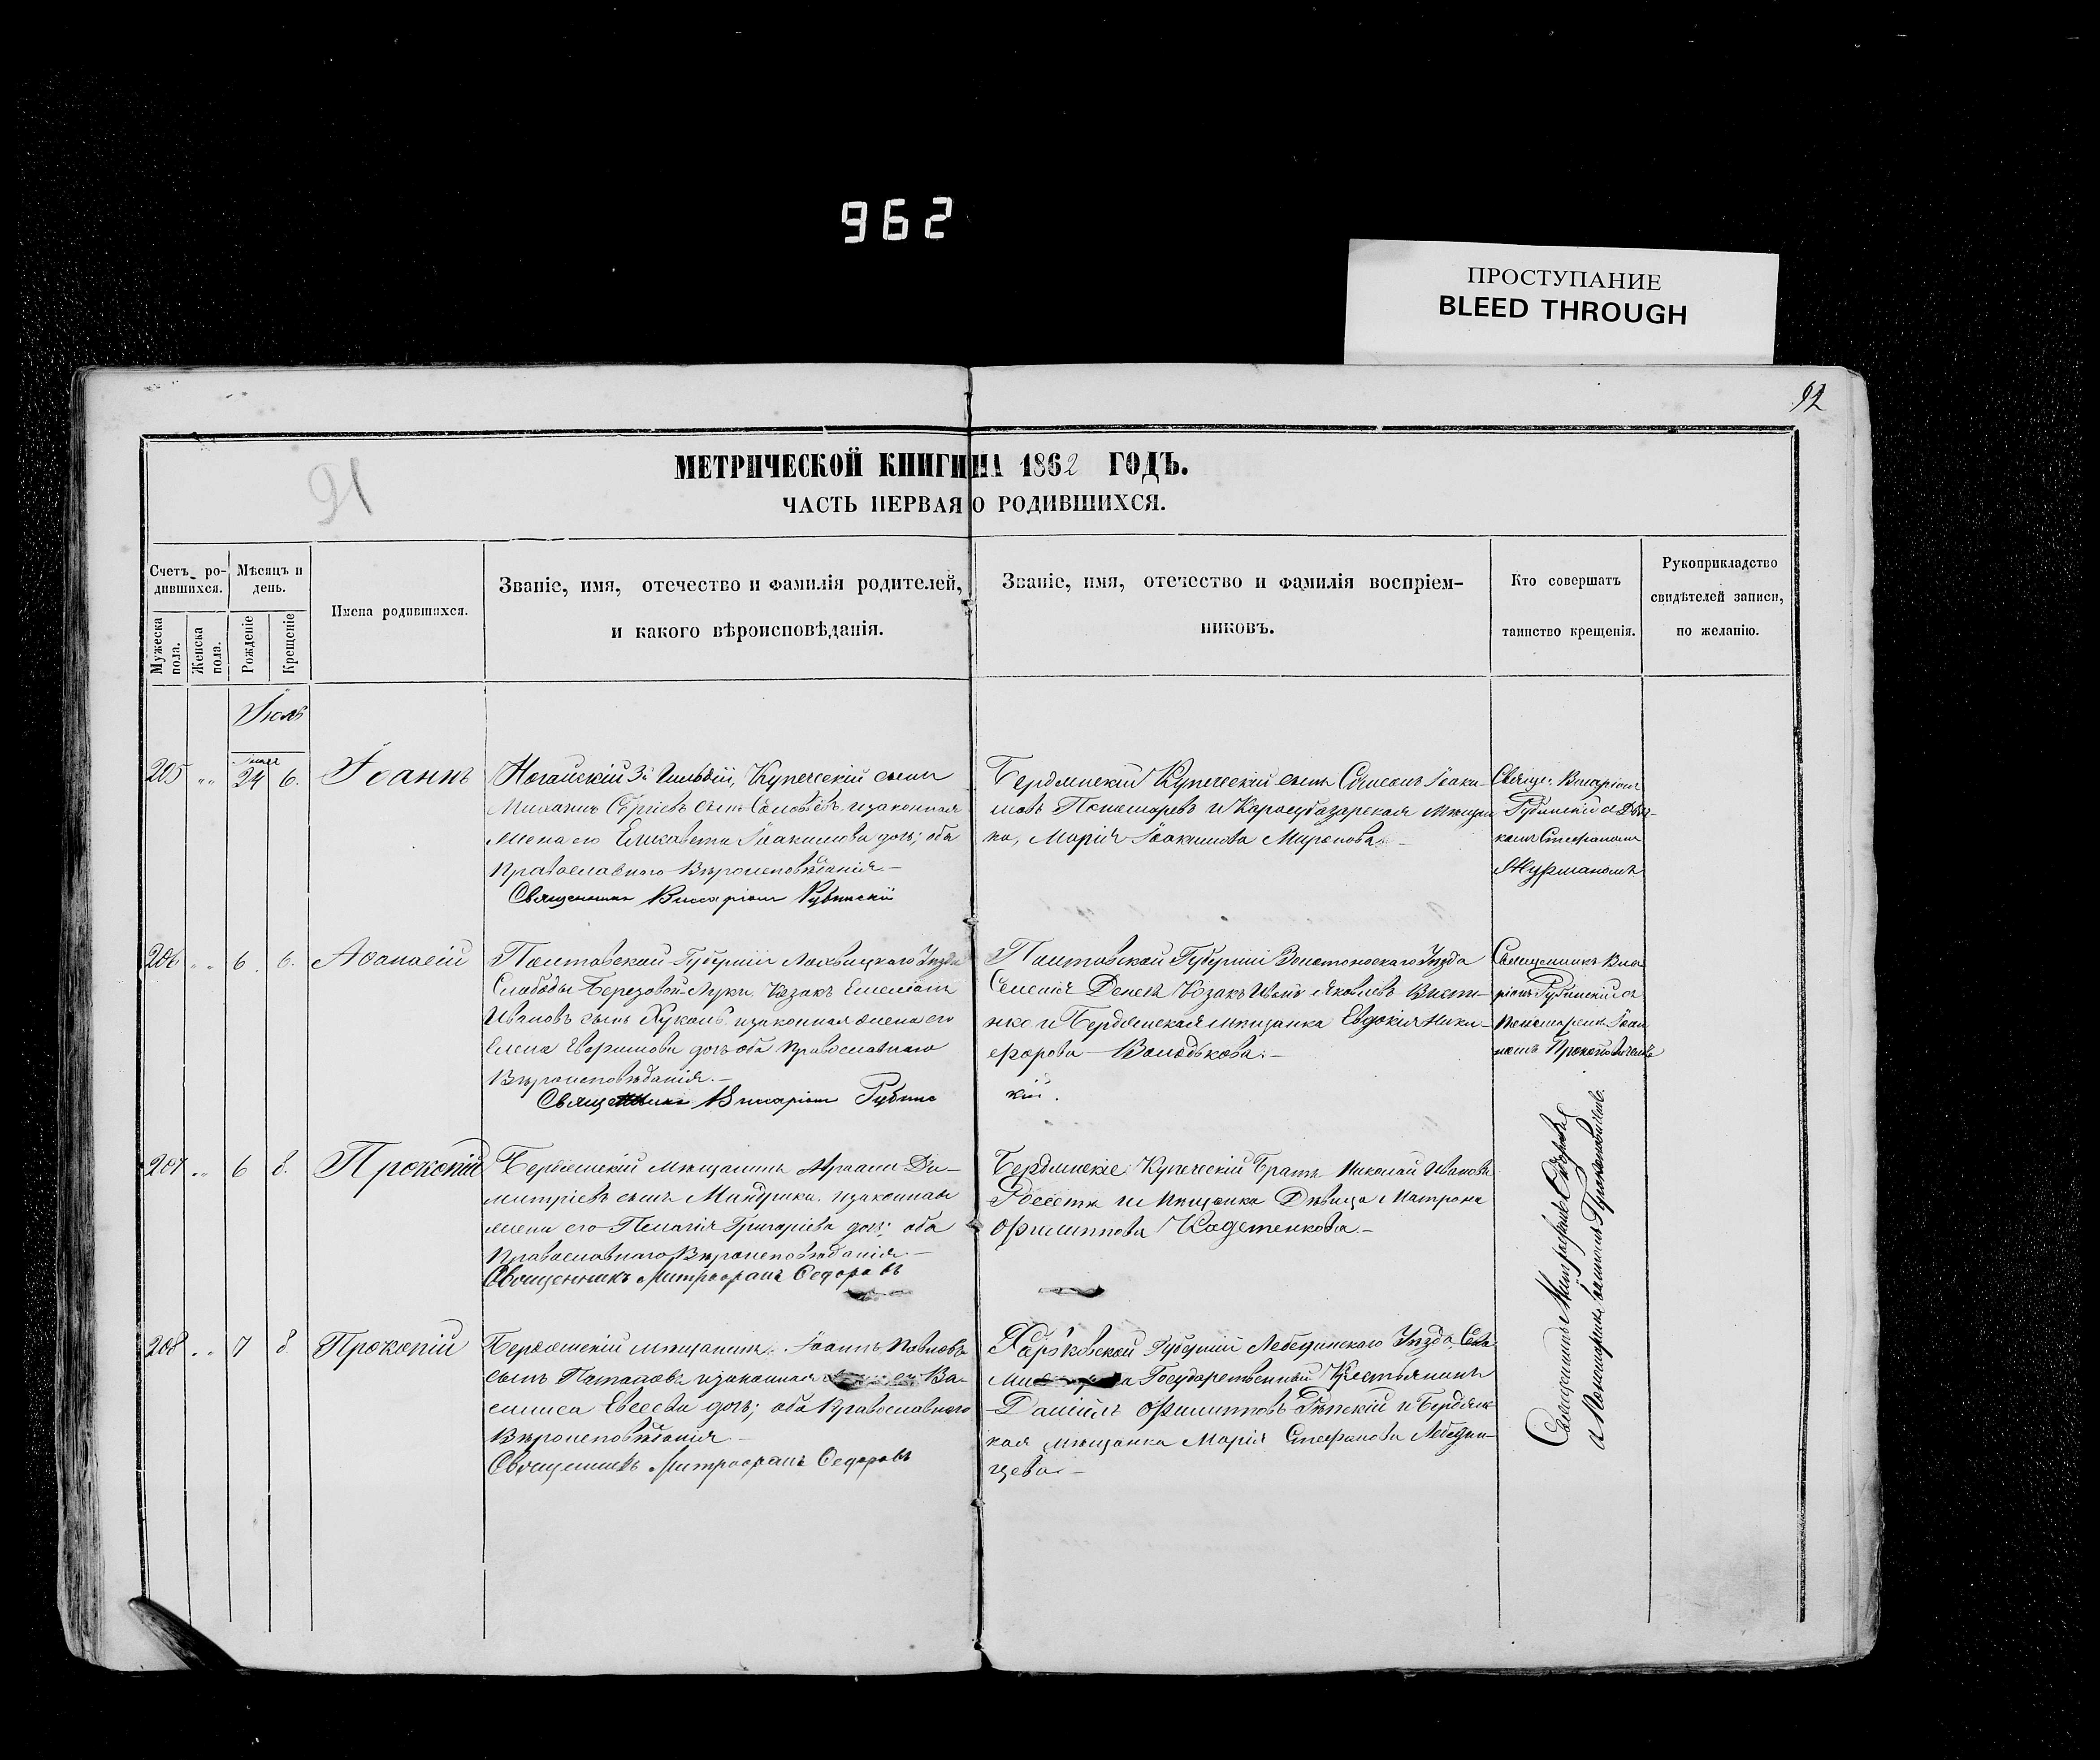 962
ПРОСТУПАНИЕ
BLEED THROUGH
92
91
МЕТРИЧЕСКОЙ КНИГИ НА 1862 ГОДЪ.
ЧАСТЬ ПЕРВАЯ О РОДИВШИХСЯ.
Счетъ родившихся.
Мужеска пола.
Женска пола.
Мѣсяцъ и день.
Рожденіе
Крещеніе
Имена родившихся.
Званіе, имя, отечество и фамилія родителей,
и какого вѣроисповѣданія.
Званіе, имя, отечество и фамилія воспріем-
никовъ.
Кто совершатъ
таинство крещенія.
Рукоприкладство
свидѣтелей записи,
по желанію.
Іюль
205 „ 24 6. Іоаннъ
Ногайскій 3й Гильдіи, Купеческій сынъ
Михаилъ Сергіевъ сынъ Соловьевъ и законная
жена его Елисавета Іоакимова дочь; оба
Православнаго Вѣроисповѣданія.—
Священникъ Виссаріонъ Рубинскій
Бердянскій Купеческій сынъ Іоаки-
мовъ Пономаревъ и Карасубазарская мѣщан
ка, Марія Іоакимова Миронова.—
Свящ. Виссаріонъ
Рубинскій съ Дья-
комъ Стефаномъ
206 „ 6. 6. Аѳанасій
Полтавской Губерніи Лохвицкаго Уѣзда
Слободы Березовой-Луки Козакъ Емеліанъ
Ивановъ сынъ и законная жена его
Елена дочь оба Православнаго
Вѣроисповѣданія.—
Священникъ Виссаріонъ Рубинс
кій.
Полтавской Губерніи Золотоноскаго Уѣзда
Козакъ Яковлевъ
и Бердянская мѣщанка Евдокія Ники-
форова Володькова.—
Священникъ Висса
ріонъ Рубинскій съ
Пономаремъ Іоан
номъ Прокоповичемъ
207 „ 6 8. Прокопій
Бердянскій мѣщанинъ Ди-
митріевъ сынъ и законная
жена его Пелагія Григоріева дочь; оба
Православнаго Вѣроисповѣданія.—
Священникъ Митрофанъ Ѳедоровъ
Бердянскіе: Купеческій Братъ Николай Ивановъ
и мѣщанка Дѣвица Матрона
Филиппова Кадетенкова.—
208 „ 7 8 Прокопій
Бердянскій мѣщанинъ Іоаннъ Павловъ
сынъ и законная Ва-
силиса Евсеева дочь; оба Православнаго
Вѣроисповѣданія.—
Священникъ Митрофанъ Ѳедоровъ
Харьковской Губерніи Лебединскаго Уѣзда, Села
Государственный Крестьянинъ
Даніилъ Филипповъ и Бердянс
кая мѣщанка Марія Стефанова Лебедин-
цева.—
Священникъ Митрофанъ Ѳедоровъ
съ Пономаремъ Іоанномъ Прокоповичемъ.